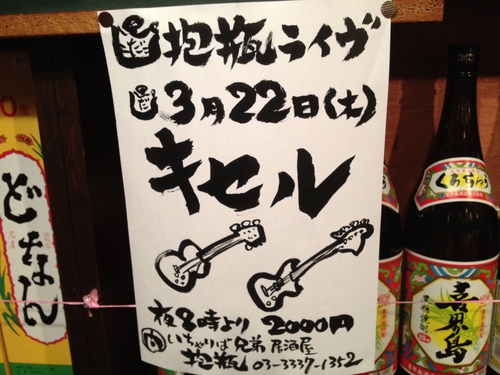 抱瓶ライヴ
3月22日(土)
キセル
夜8時より 2000円
いちゃりば兄弟 居酒屋
抱瓶 03-3337-1352
どなん
くろちゅう
喜界島